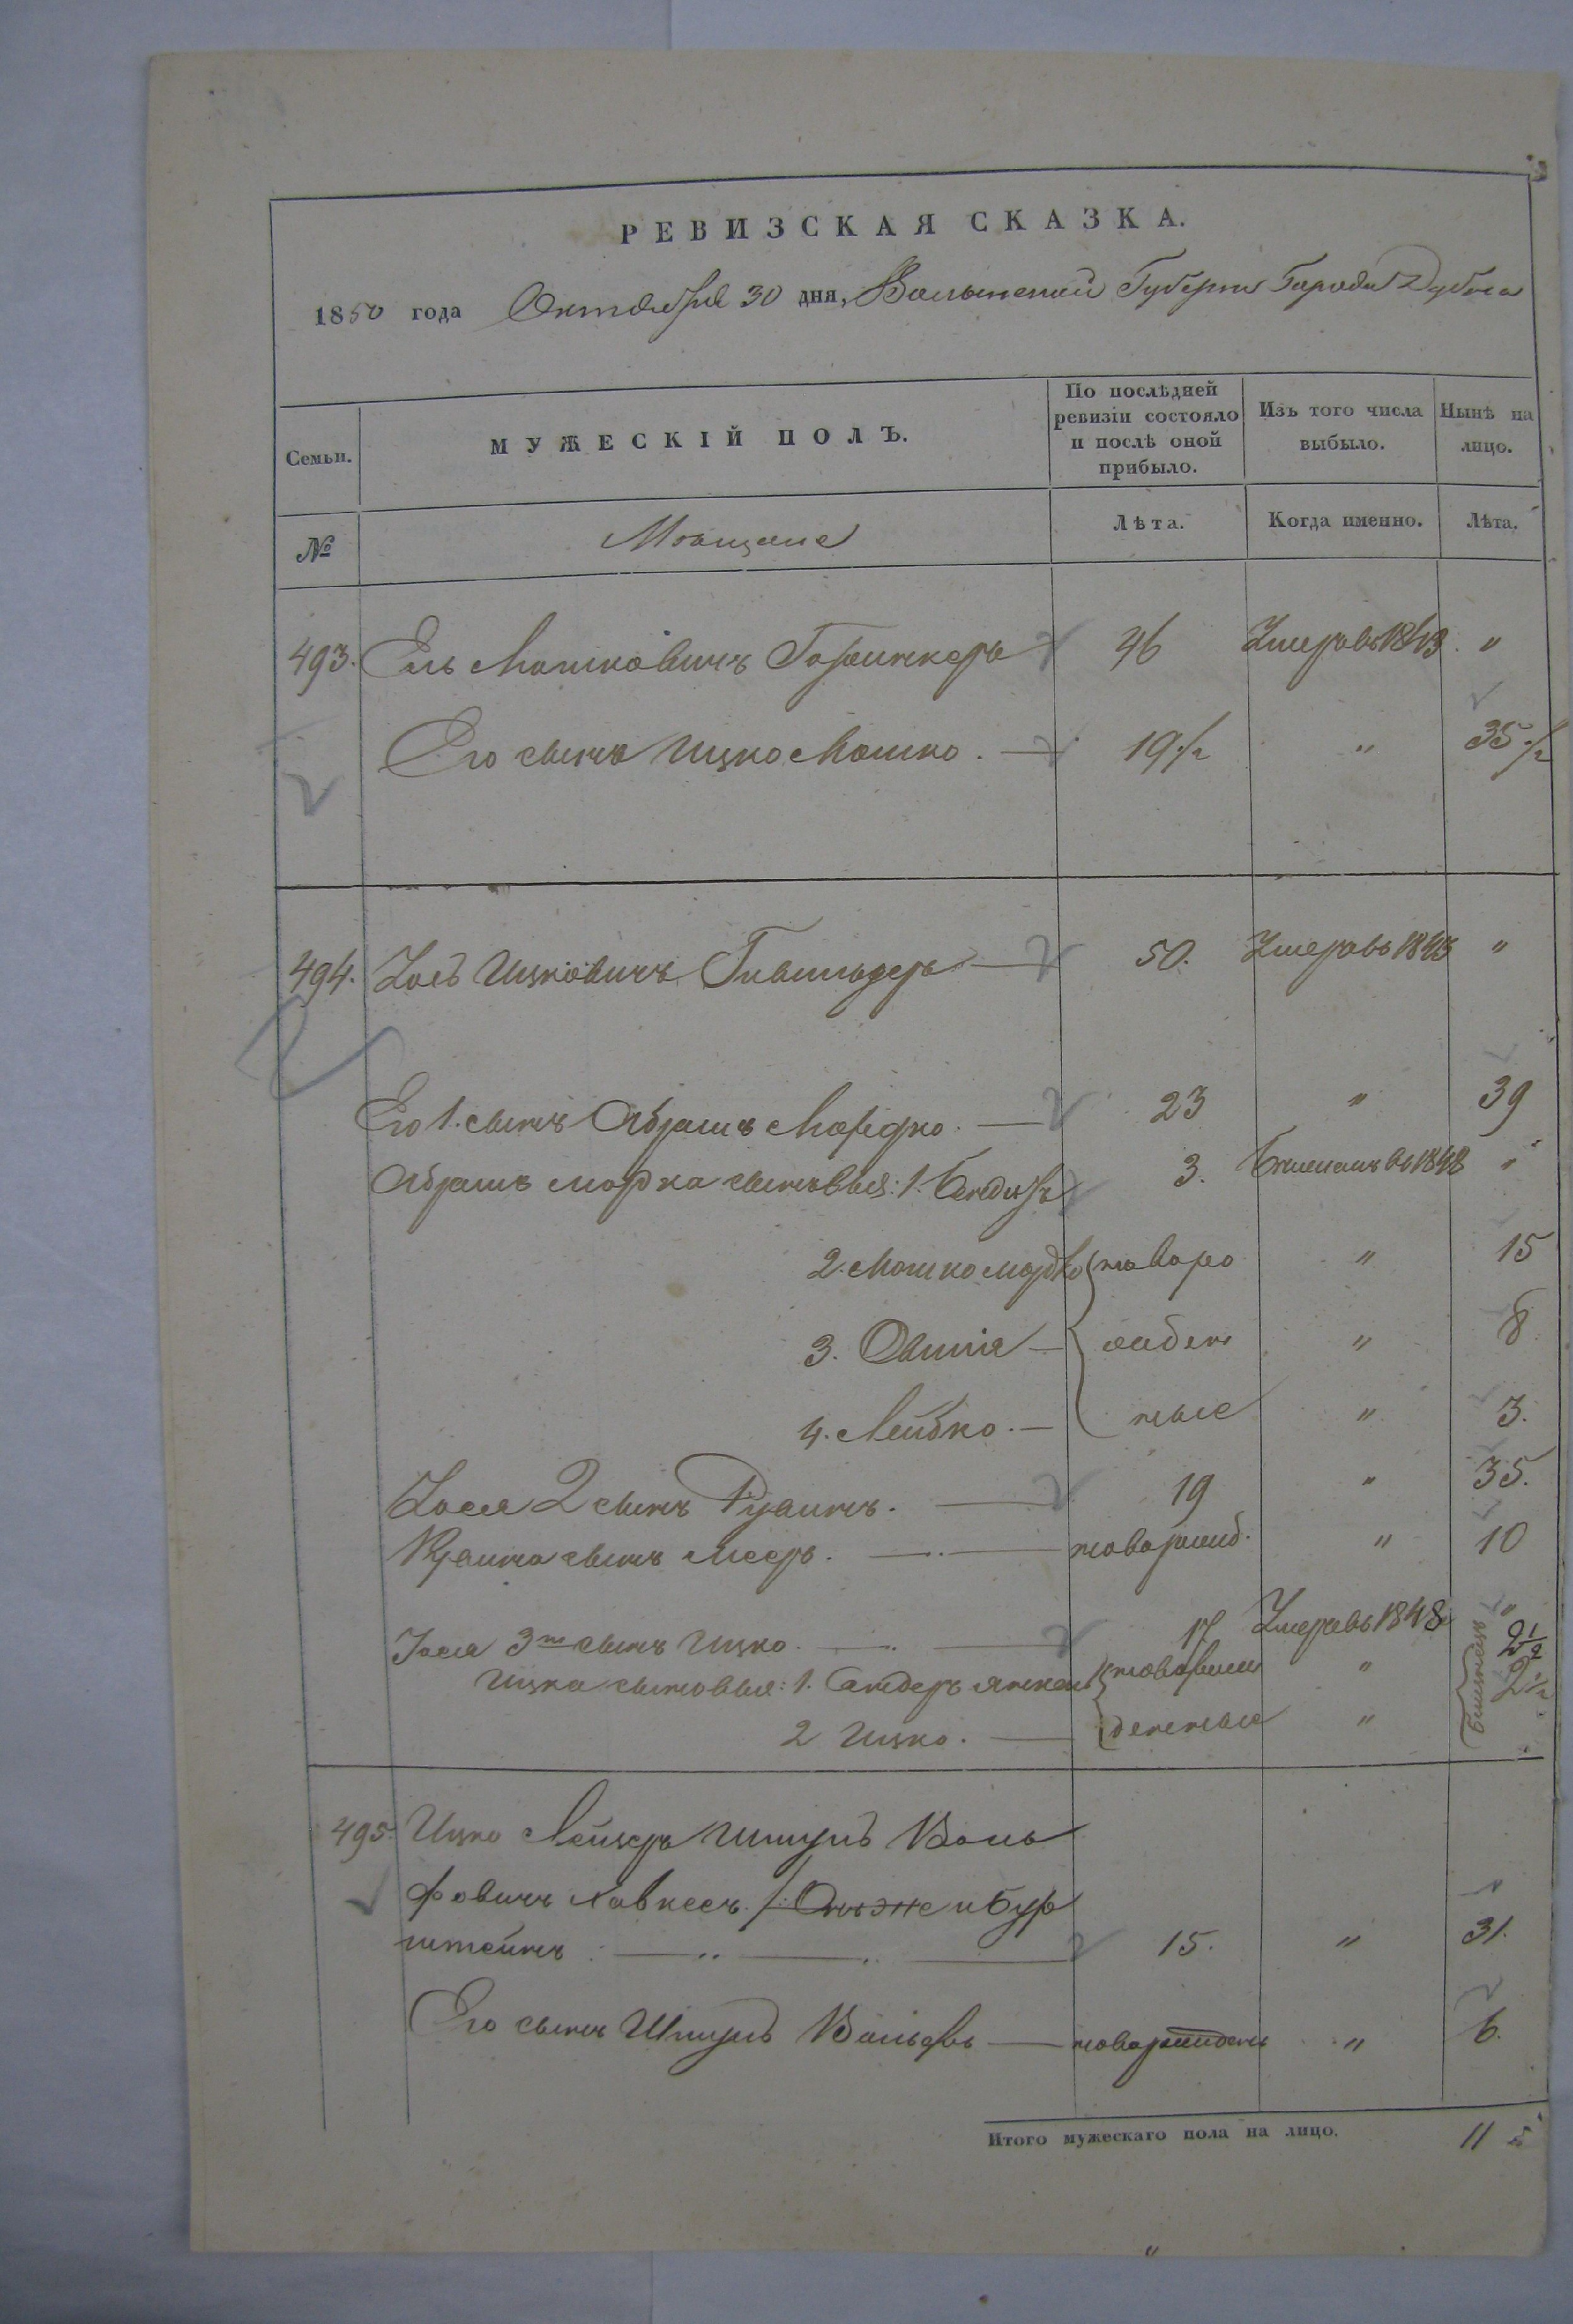 РЕВИЗСКАЯ СКАЗКА.
1850 года Октября 30 дня, Волынской Губернии Города Дубна
Семьи. МУЖЕСКІЙ ПОЛЪ. По послѣдней ревизіи состояло и послѣ оной прибыло. Изъ того числа выбыло. Нынѣ на лицо.
№ Мѣщане Лѣта. Когда именно. Лѣта.
493. Ель Мошковичъ 46 Умеръ въ 1843 "
Его сынъ Ицко Мошко. 19 1/2 " 35 1/2
494. Іось Ицковичъ 50. Умеръ въ 1843 "
Его 1. сынъ Абрамъ Мордко. 23 " 39
Абрамъ Мордка сыновья: 1. 3. 1848 "
2. Мошко Мордко новоро " 15
3. Овшія ожден " 8
4. Лейбко. ные " 3.
Іося 2 сынъ Рувинъ. 19 " 35.
Рувина сынъ Мееръ. новорожд. " 10
Іося 3й сынъ Ицко. 17 Умеръ въ 1848 "
Ицка сыновья: 1. Сендеръ новорож " 2 1/2
2 Ицко. денные " 2 1/2
близнецы
495. Ицко Лейзеръ Шмуль Воль
фовичъ /: Онъ же и Бур
штейнъ 15. " 31.
Его сынъ Шмуль Вольфъ новорожденъ " 6.
Итого мужескаго пола на лицо. 11